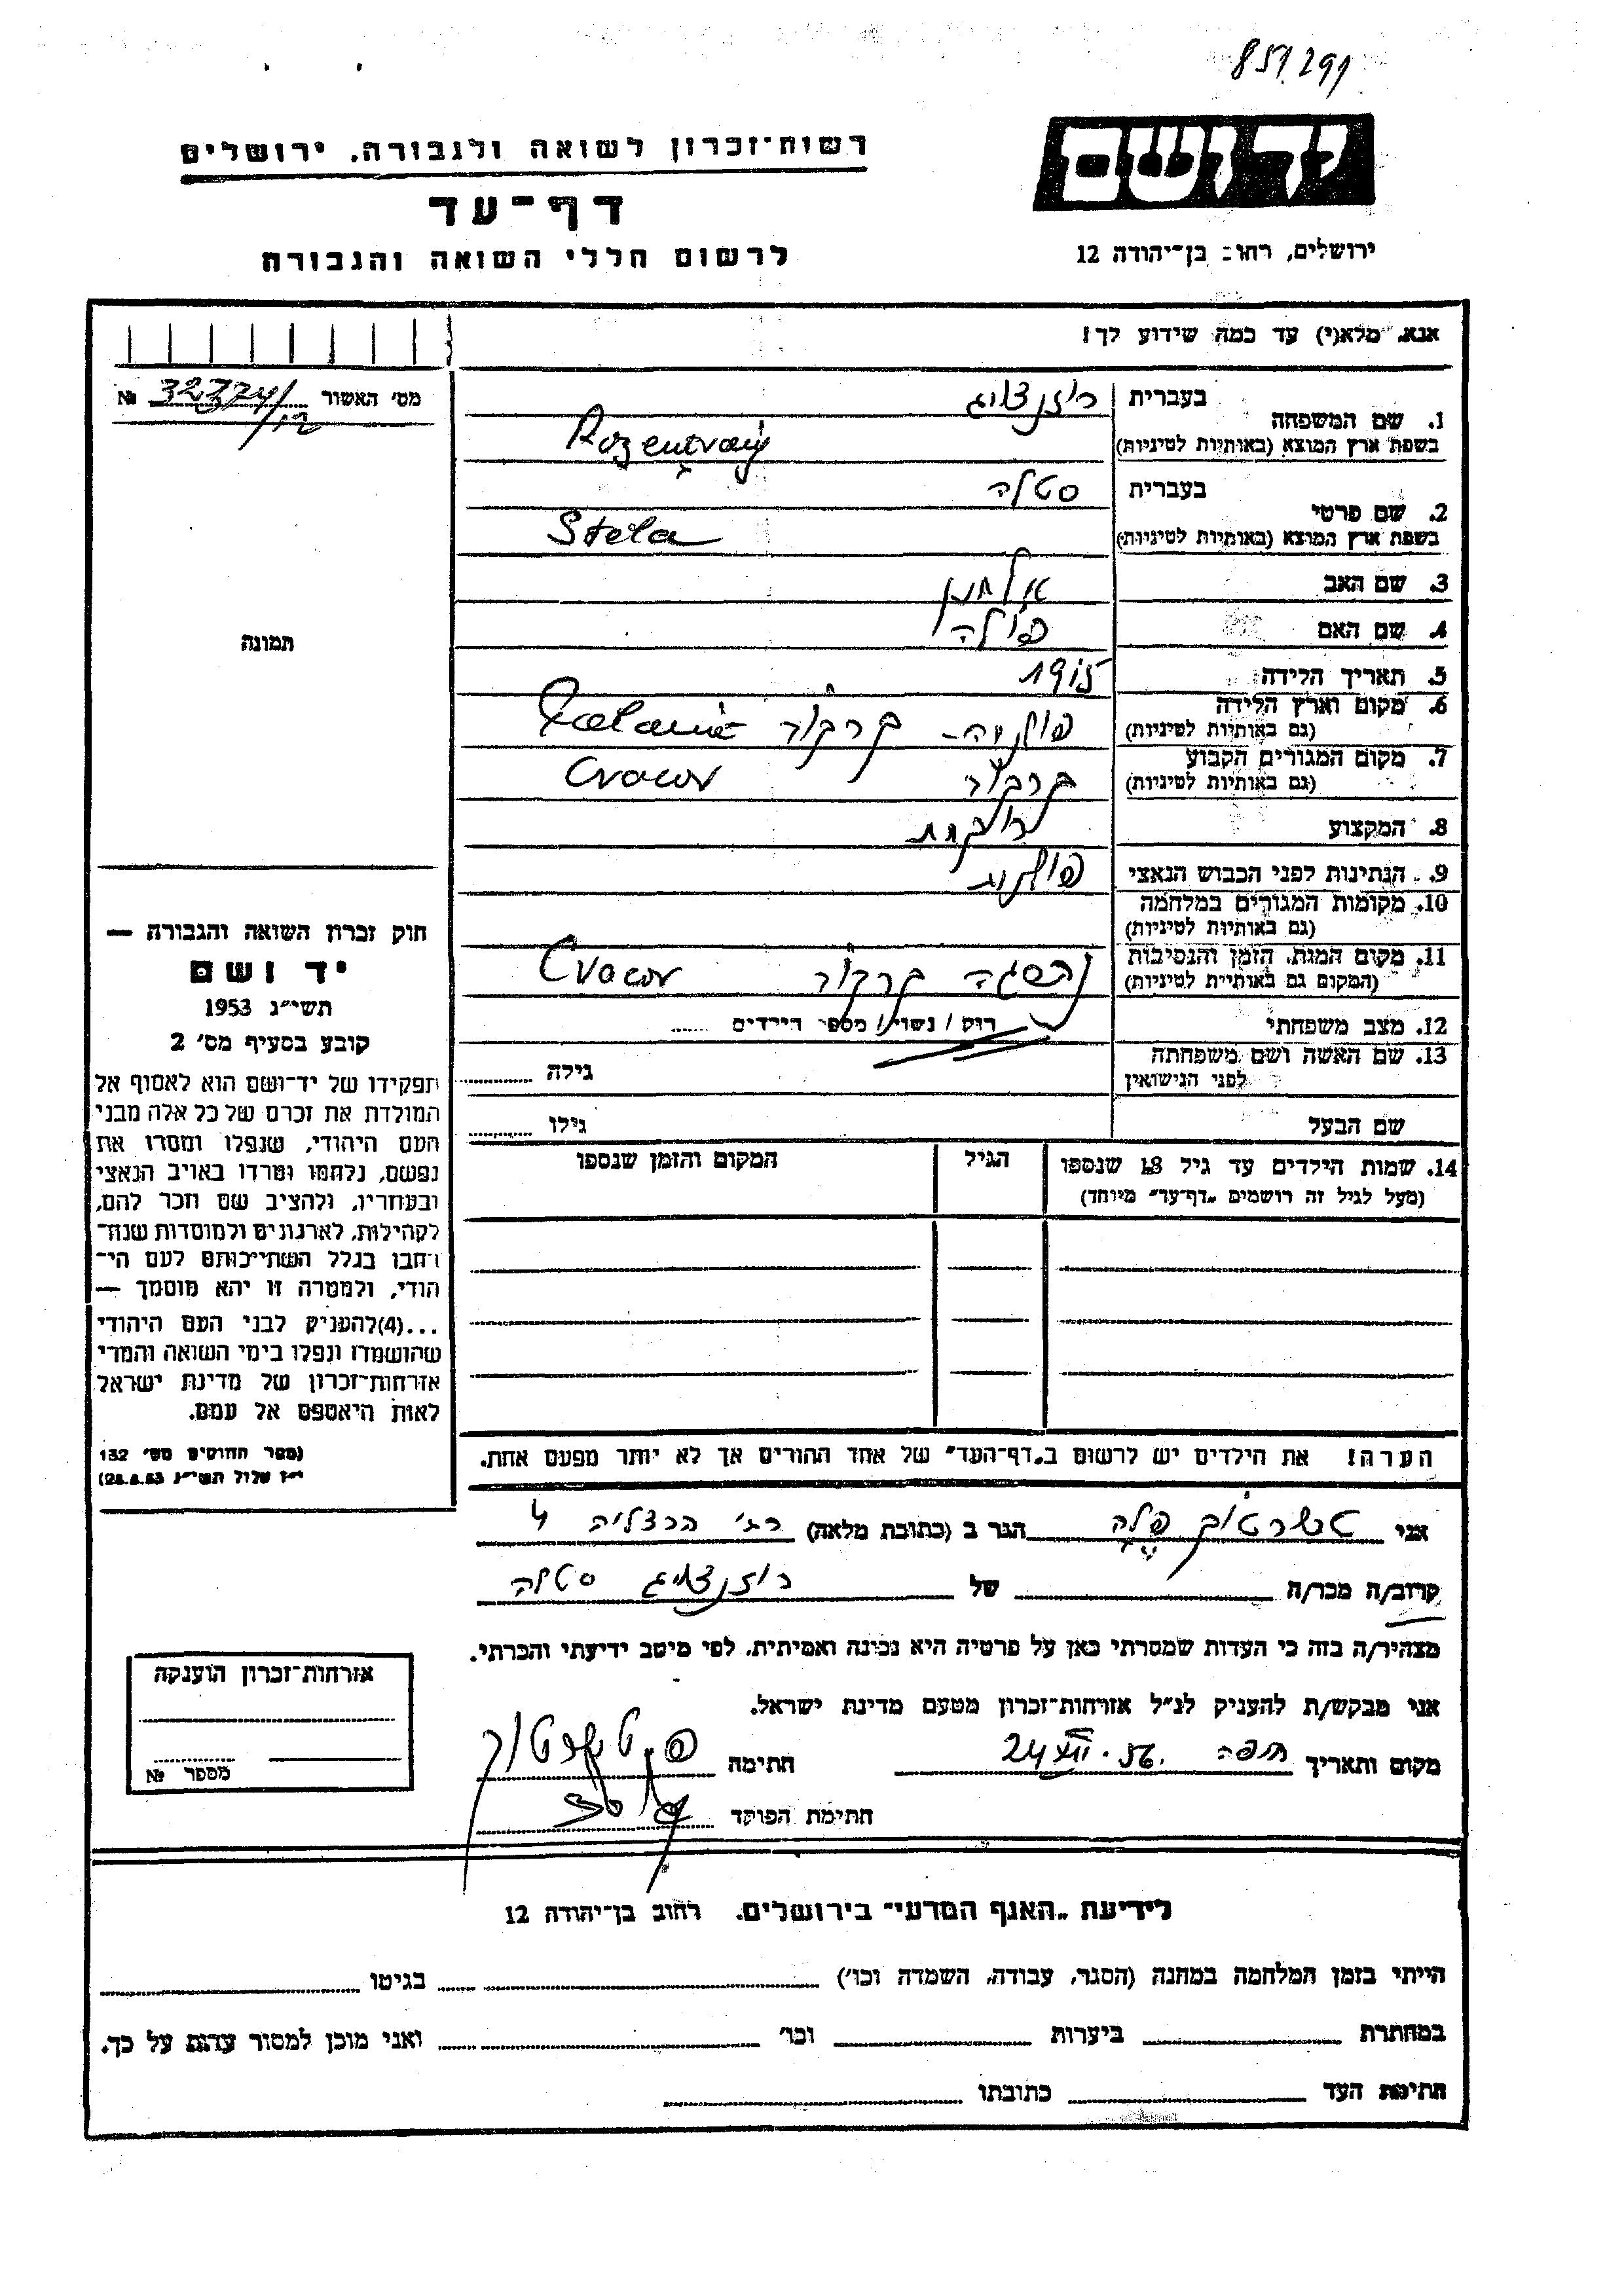 851.291
רשות־זכרון לשואה ולגבורה, ירושלים
דף־עד
לרשום חללי השואה והגבורה
יד ושם
ירושלים, רחוב בן־יהודה 12
אנא, מלא(י) עד כמה שידוע לך!
מס׳ האשור 32374/12 №
1. שם המשפחה
בעברית רוזנצויג
בשפת ארץ המוצא (באותיות לטיניות)
2. שם פרטי
בעברית סטלה
בשפת ארץ המוצא (באותיות לטיניות) Stela
3. שם האב אלחנן
4. שם האם פולה
5. תאריך הלידה 1915
6. מקום וארץ הלידה פולניה - קרקוב
(גם באותיות לטיניות)
7. מקום המגורים הקבוע קרקוב Cracow
(גם באותיות לטיניות)
8. המקצוע רוקחת
9. הנתינות לפני הכבוש הנאצי פולנית
10. מקומות המגורים במלחמה
(גם באותיות לטיניות)
11. מקום המות, הזמן והנסיבות נספתה קרקוב Cracow
(המקום גם באותיות לטיניות)
12. מצב משפחתי רוק / נשוי / מספר הילדים
13. שם האשה ושם משפחתה
לפני הנישואין גילה
שם הבעל גילו
14. שמות הילדים עד גיל 18 שנספו הגיל המקום והזמן שנספו
(מעל לגיל זה רושמים „דף־עד״ מיוחד)
הערה! את הילדים יש לרשום ב„דף־העד״ של אחד ההורים אך לא יותר מפעם אחת.
תמונה
חוק זכרון השואה והגבורה —
יד ושם
תשי״ג 1953
קובע בסעיף מס׳ 2
תפקידו של יד־ושם הוא לאסוף אל
המולדת את זכרם של כל אלה מבני
העם היהודי, שנפלו ומסרו את
נפשם, נלחמו ומרדו באויב הנאצי
ובעוזריו, ולהציב שם וזכר להם,
לקהילות, לארגונים ולמוסדות שנח־
רבו בגלל השתייכותם לעם הי־
הודי, ולמטרה זו יהא מוסמך —
...(4)להעניק לבני העם היהודי
שהושמדו ונפלו בימי השואה והמרי
אזרחות־זכרון של מדינת ישראל
לאות היאספם אל עמם.
(ספר החוקים מס׳ 132
י״ז אלול תשי״ג 28.8.53)
אני הגר ב (כתובת מלאה) רח׳ הרצליה 4
קרוב/ה מכר/ה של רוזנצויג סטלה
מצהיר/ה בזה כי העדות שמסרתי כאן על פרטיה היא נכונה ואמיתית, לפי מיטב ידיעתי והכרתי.
אני מבקש/ת להעניק לנ״ל אזרחות־זכרון מטעם מדינת ישראל.
מקום ותאריך חיפה 24 VII. 56. חתימה
חתימת הפוקד
אזרחות־זכרון הוענקה
מספר №
לידיעת „האגף המדעי״ בירושלים, רחוב בן־יהודה 12
הייתי בזמן המלחמה במחנה (הסגר, עבודה, השמדה וכו׳) בגיטו
במחתרת ביערות וכו׳ ואני מוכן למסור עדות על כך.
חתימת העד כתובתו